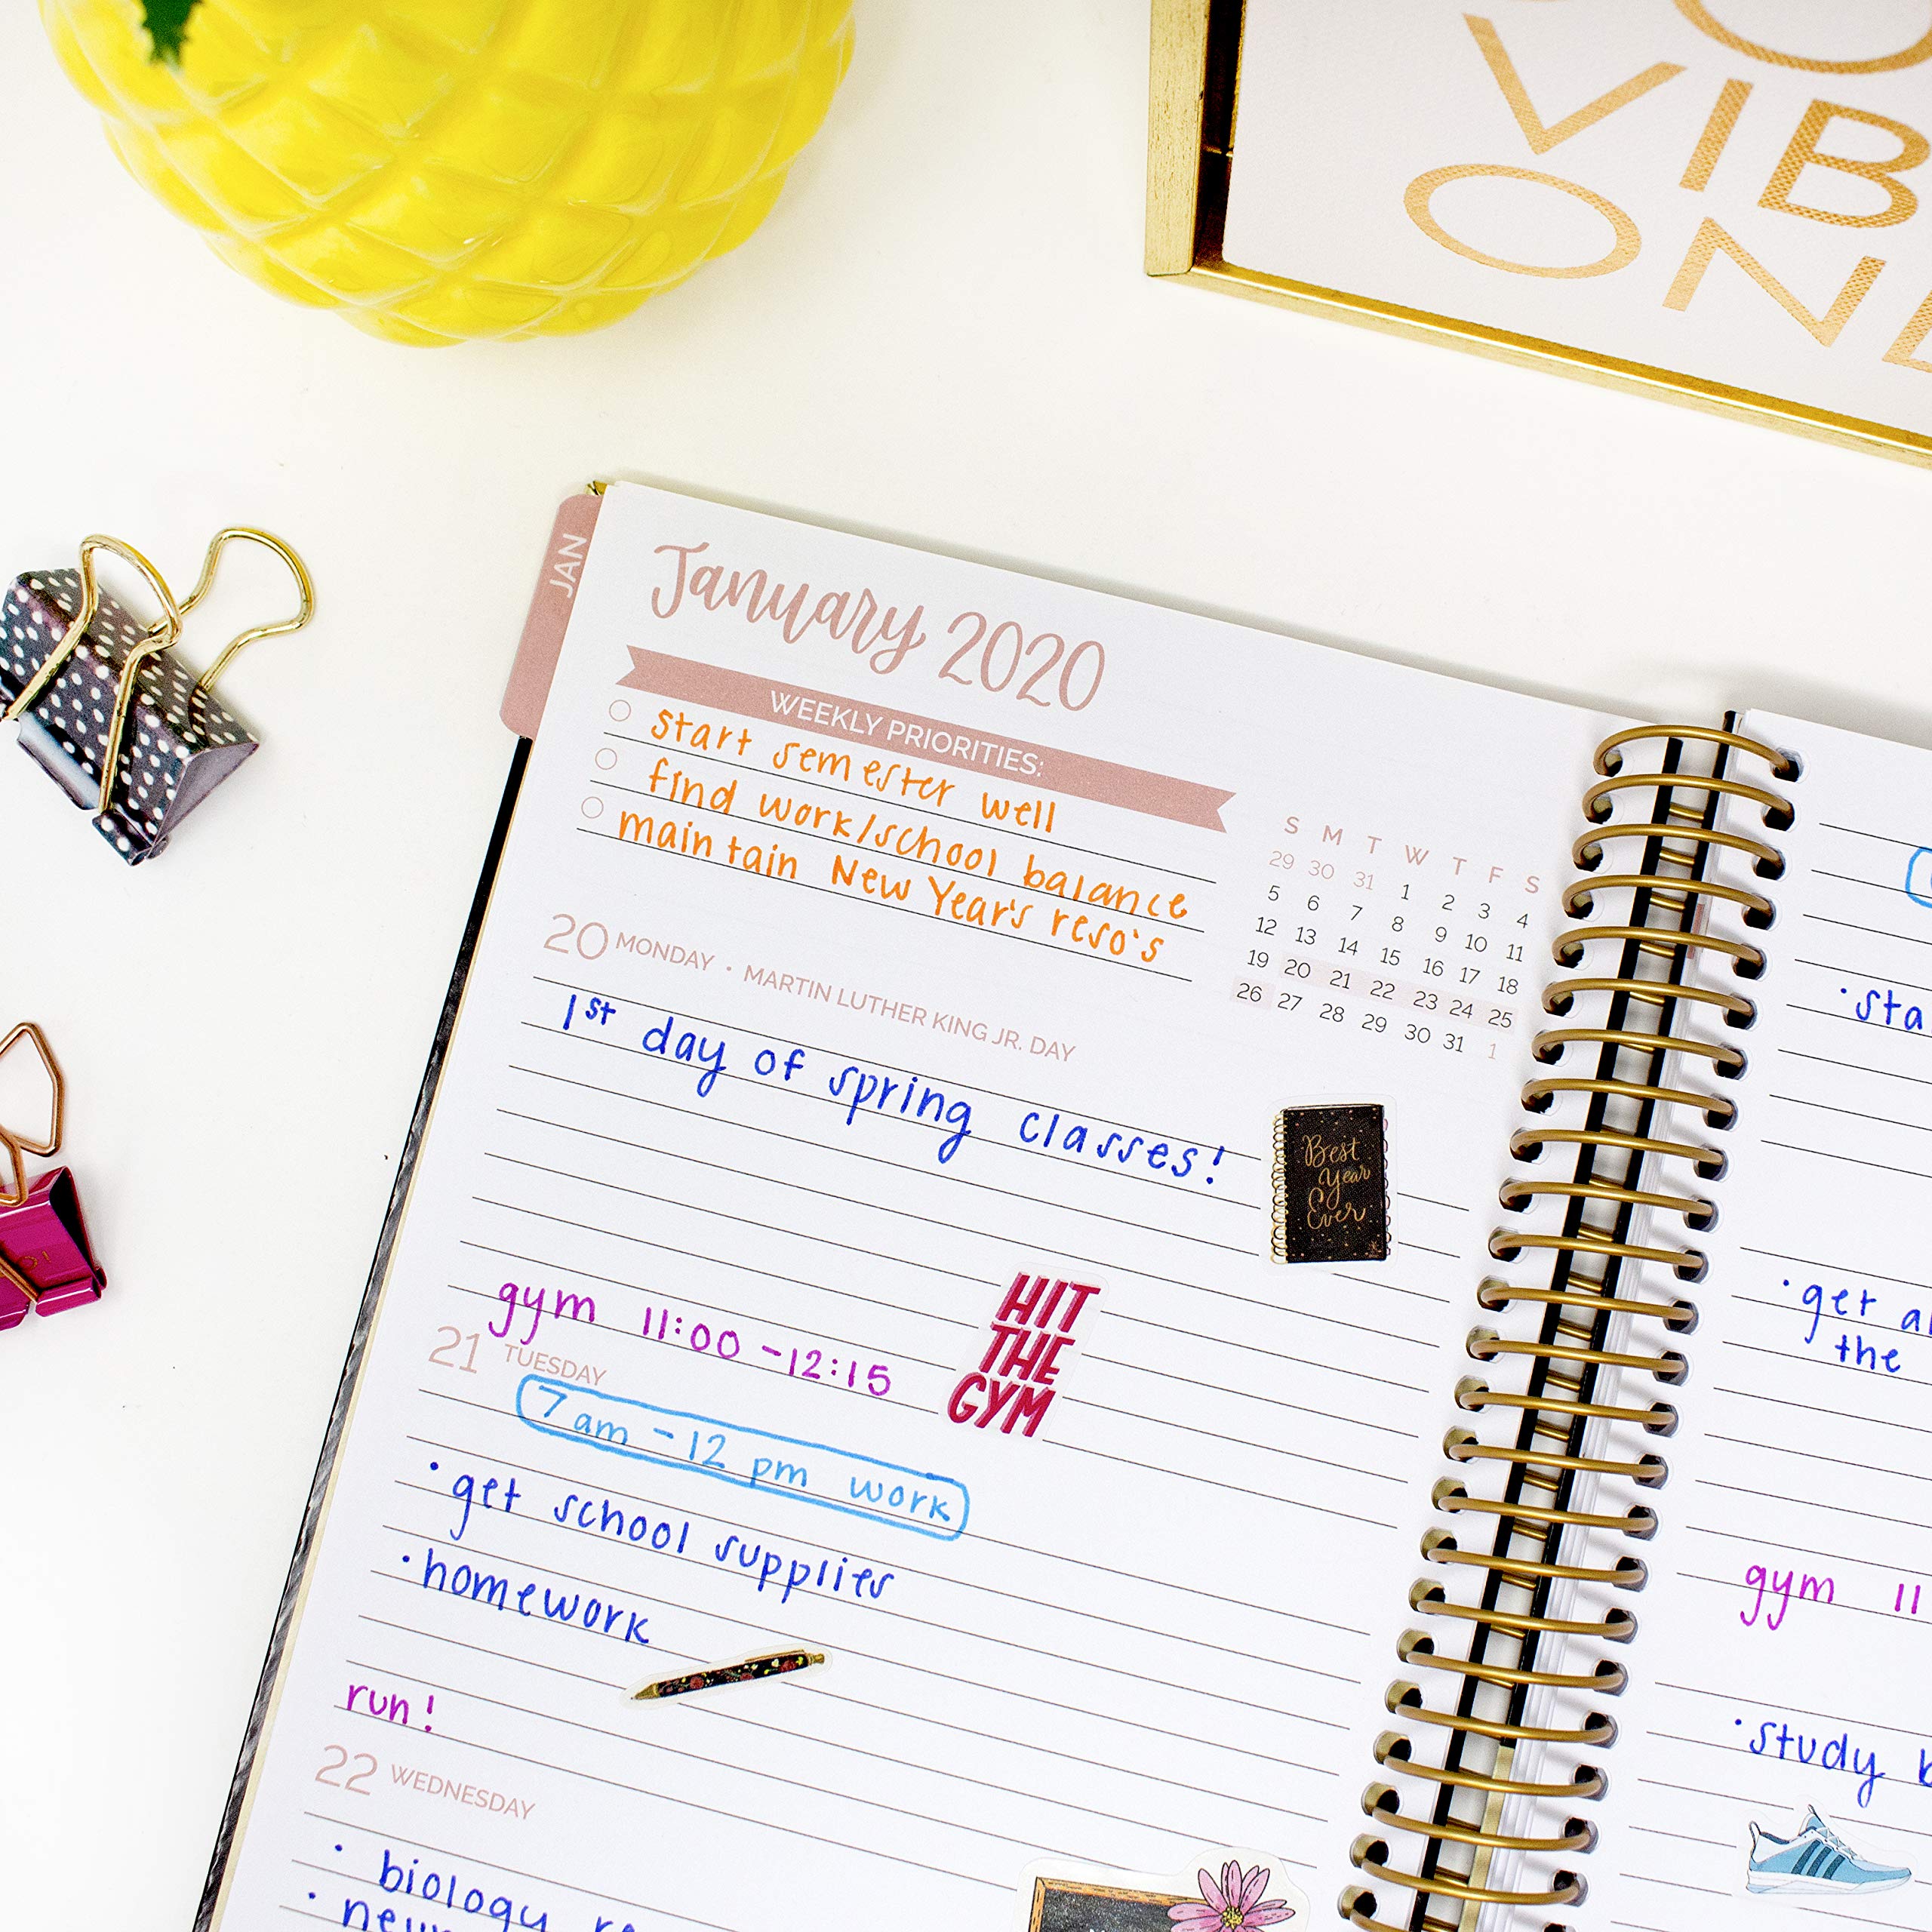 VIB
ON
JAN
January 2020
WEEKLY PRIORITIES:
start semester well
find work/school balance
maintain New Year's reso's
S M T W T F S
29 30 31 1 2 3 4
5 6 7 8 9 10 11
12 13 14 15 16 17 18
19 20 21 22 23 24 25
26 27 28 29 30 31 1
20 MONDAY • MARTIN LUTHER KING JR. DAY
1st day of spring classes!
Best
Year
Ever
gym 11:00 - 12:15
HIT
THE
GYM
21 TUESDAY
7am - 12 pm work
• get school supplies
• homework
run!
22 WEDNESDAY
• biology
•
• sta
• get
the
gym 11
• study